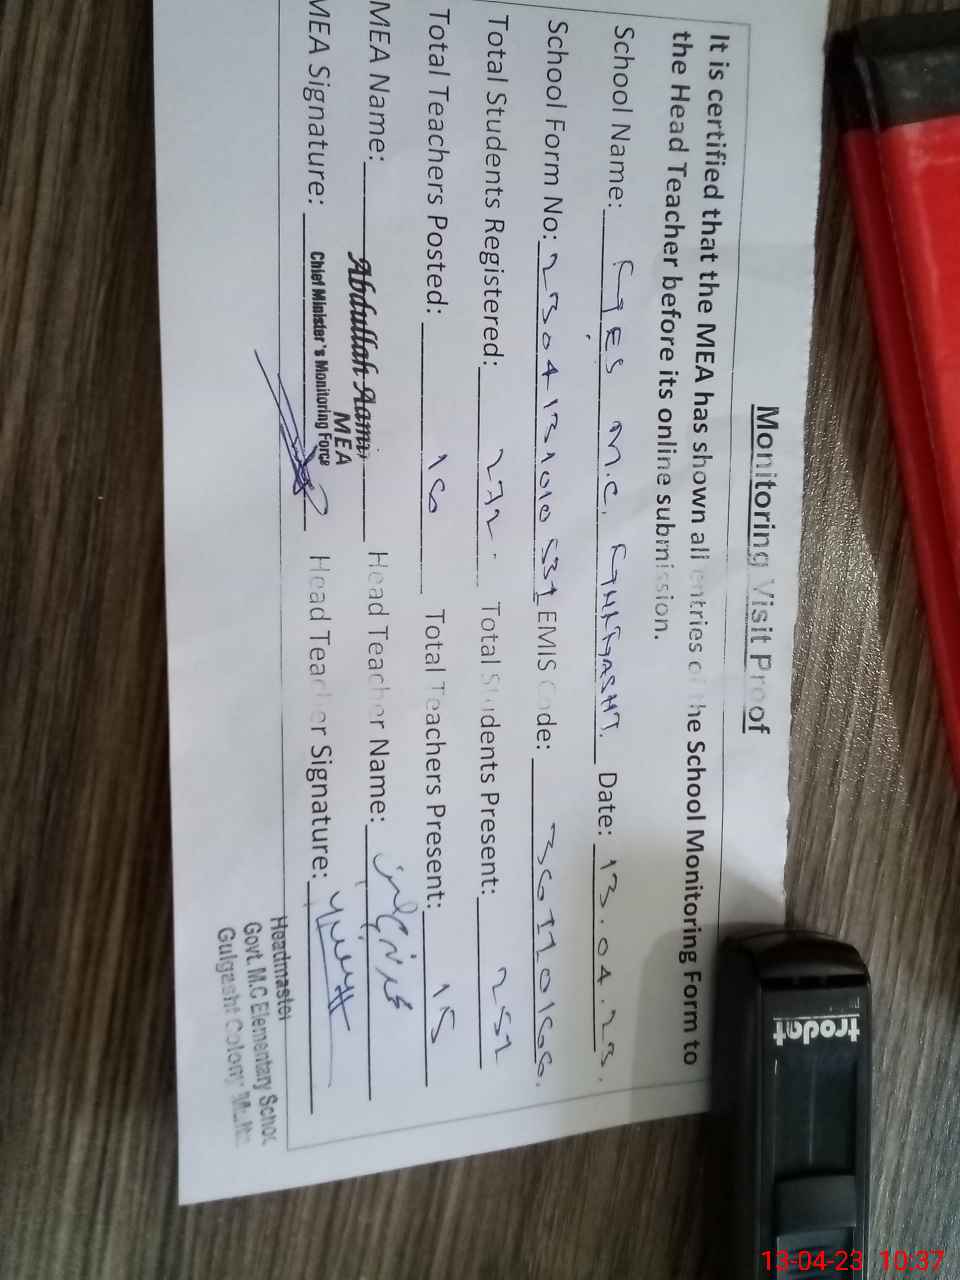 Monitoring Visit Proof
It is certified that the MEA has shown all entries of the School Monitoring Form to
the Head Teacher before its online submission.
School Name: GES M.C. GULGASHT. Date: 13.04.23.
School Form No: EMIS Code:
Total Students Registered: 272. Total Students Present: 251
Total Teachers Posted: 16 Total Teachers Present: 15
MEA Name: Abdullah Aamir Head Teacher Name:
MEA
Chief Minister's Monitoring Force
MEA Signature: Head Teacher Signature:
Headmaster
Govt. M.C Elementary School
Gulgasht Colony
trodat
13-04-23 10:37